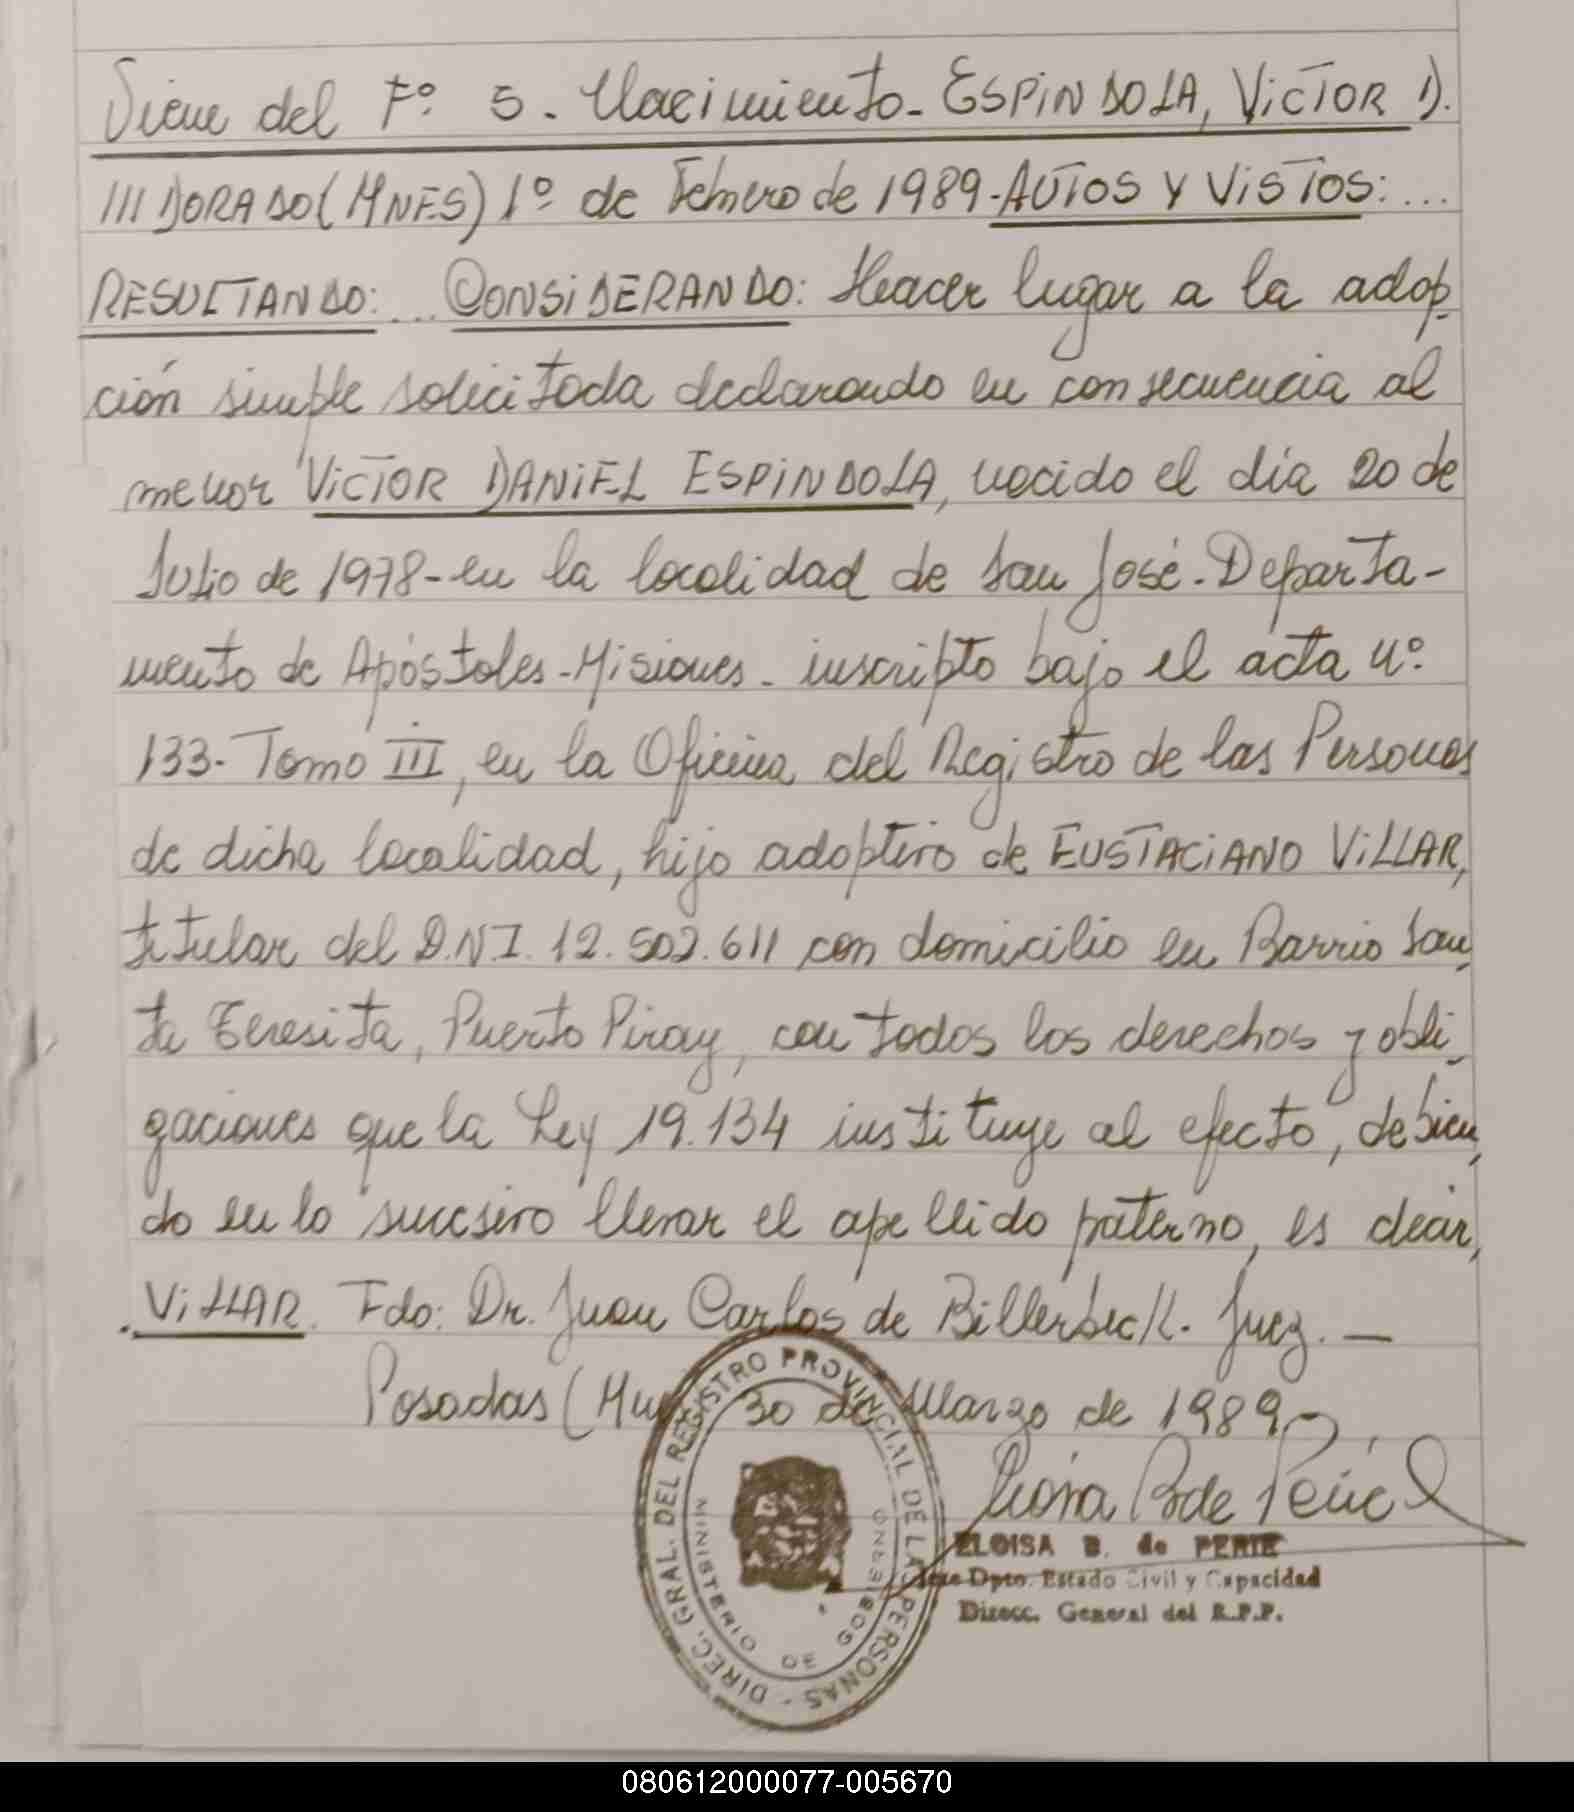 Viene del Fº. 5. Nacimiento- ESPINDOLA, VICTOR D.
III DORADO (MNES) 1º de Febrero de 1989.-AUTOS Y VISTOS:...
RESULTANDO:... CONSIDERANDO: Hacer lugar a la adop-
ción simple solicitada declarando en consecuencia al
menor VICTOR DANIEL ESPINDOLA, nacido el día 20 de
Julio de 1978-en la localidad de San José-Departa-
mento de Apóstoles-Misiones- inscripto bajo el acta nº.
133- Tomo III, en la Oficina del Registro de las Personas
de dicha localidad, hijo adoptivo de EUSTACIANO VILLAR,
titular del D.N.I. 12.502.611 con domicilio en Barrio San-
ta Teresita, Puerto Piray, con todos los derechos y obli-
gaciones que la Ley 19.134 instituye al efecto, debien-
do en lo sucesivo llevar el apellido paterno, es decir,
VILLAR. Fdo: Dr. Juan Carlos de Billerbeck. Juez.—
Posadas (Mnes) 30 de Marzo de 1989-
B de Perié
ELOISA B. de PERIE
Jefe Dpto. Estado Civil y Capacidad
Direcc. General del R.P.P.
DIREC. GRAL. DEL REGISTRO PROVINCIAL DE LAS PERSONAS -
MINISTERIO DE GOBIERNO
080612000077-005670